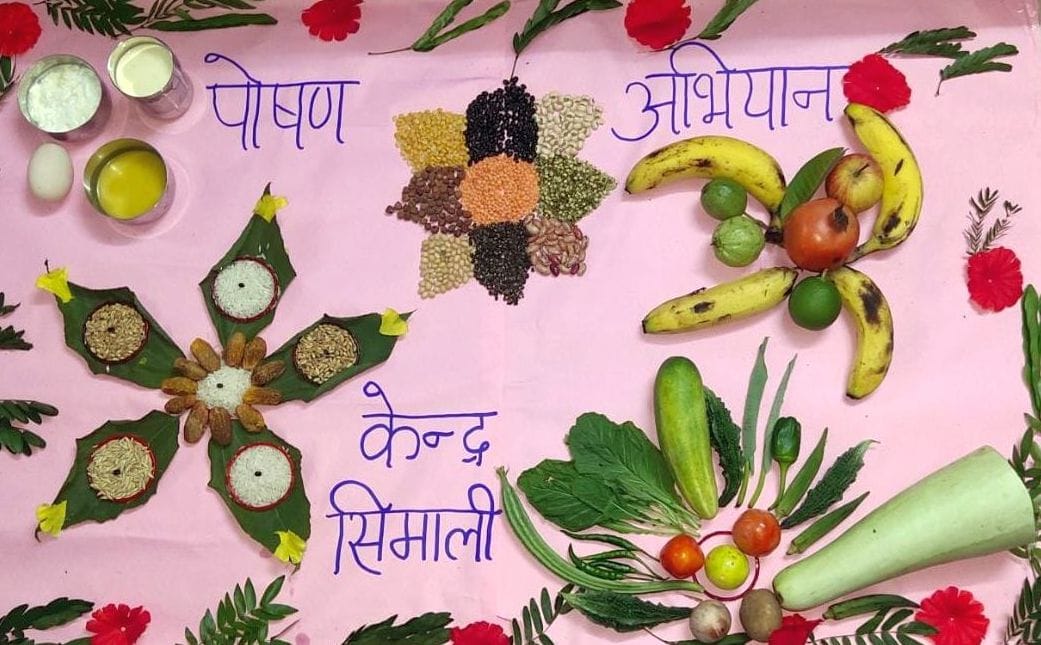 पोषण अभियान
केन्द्र
सिमाली